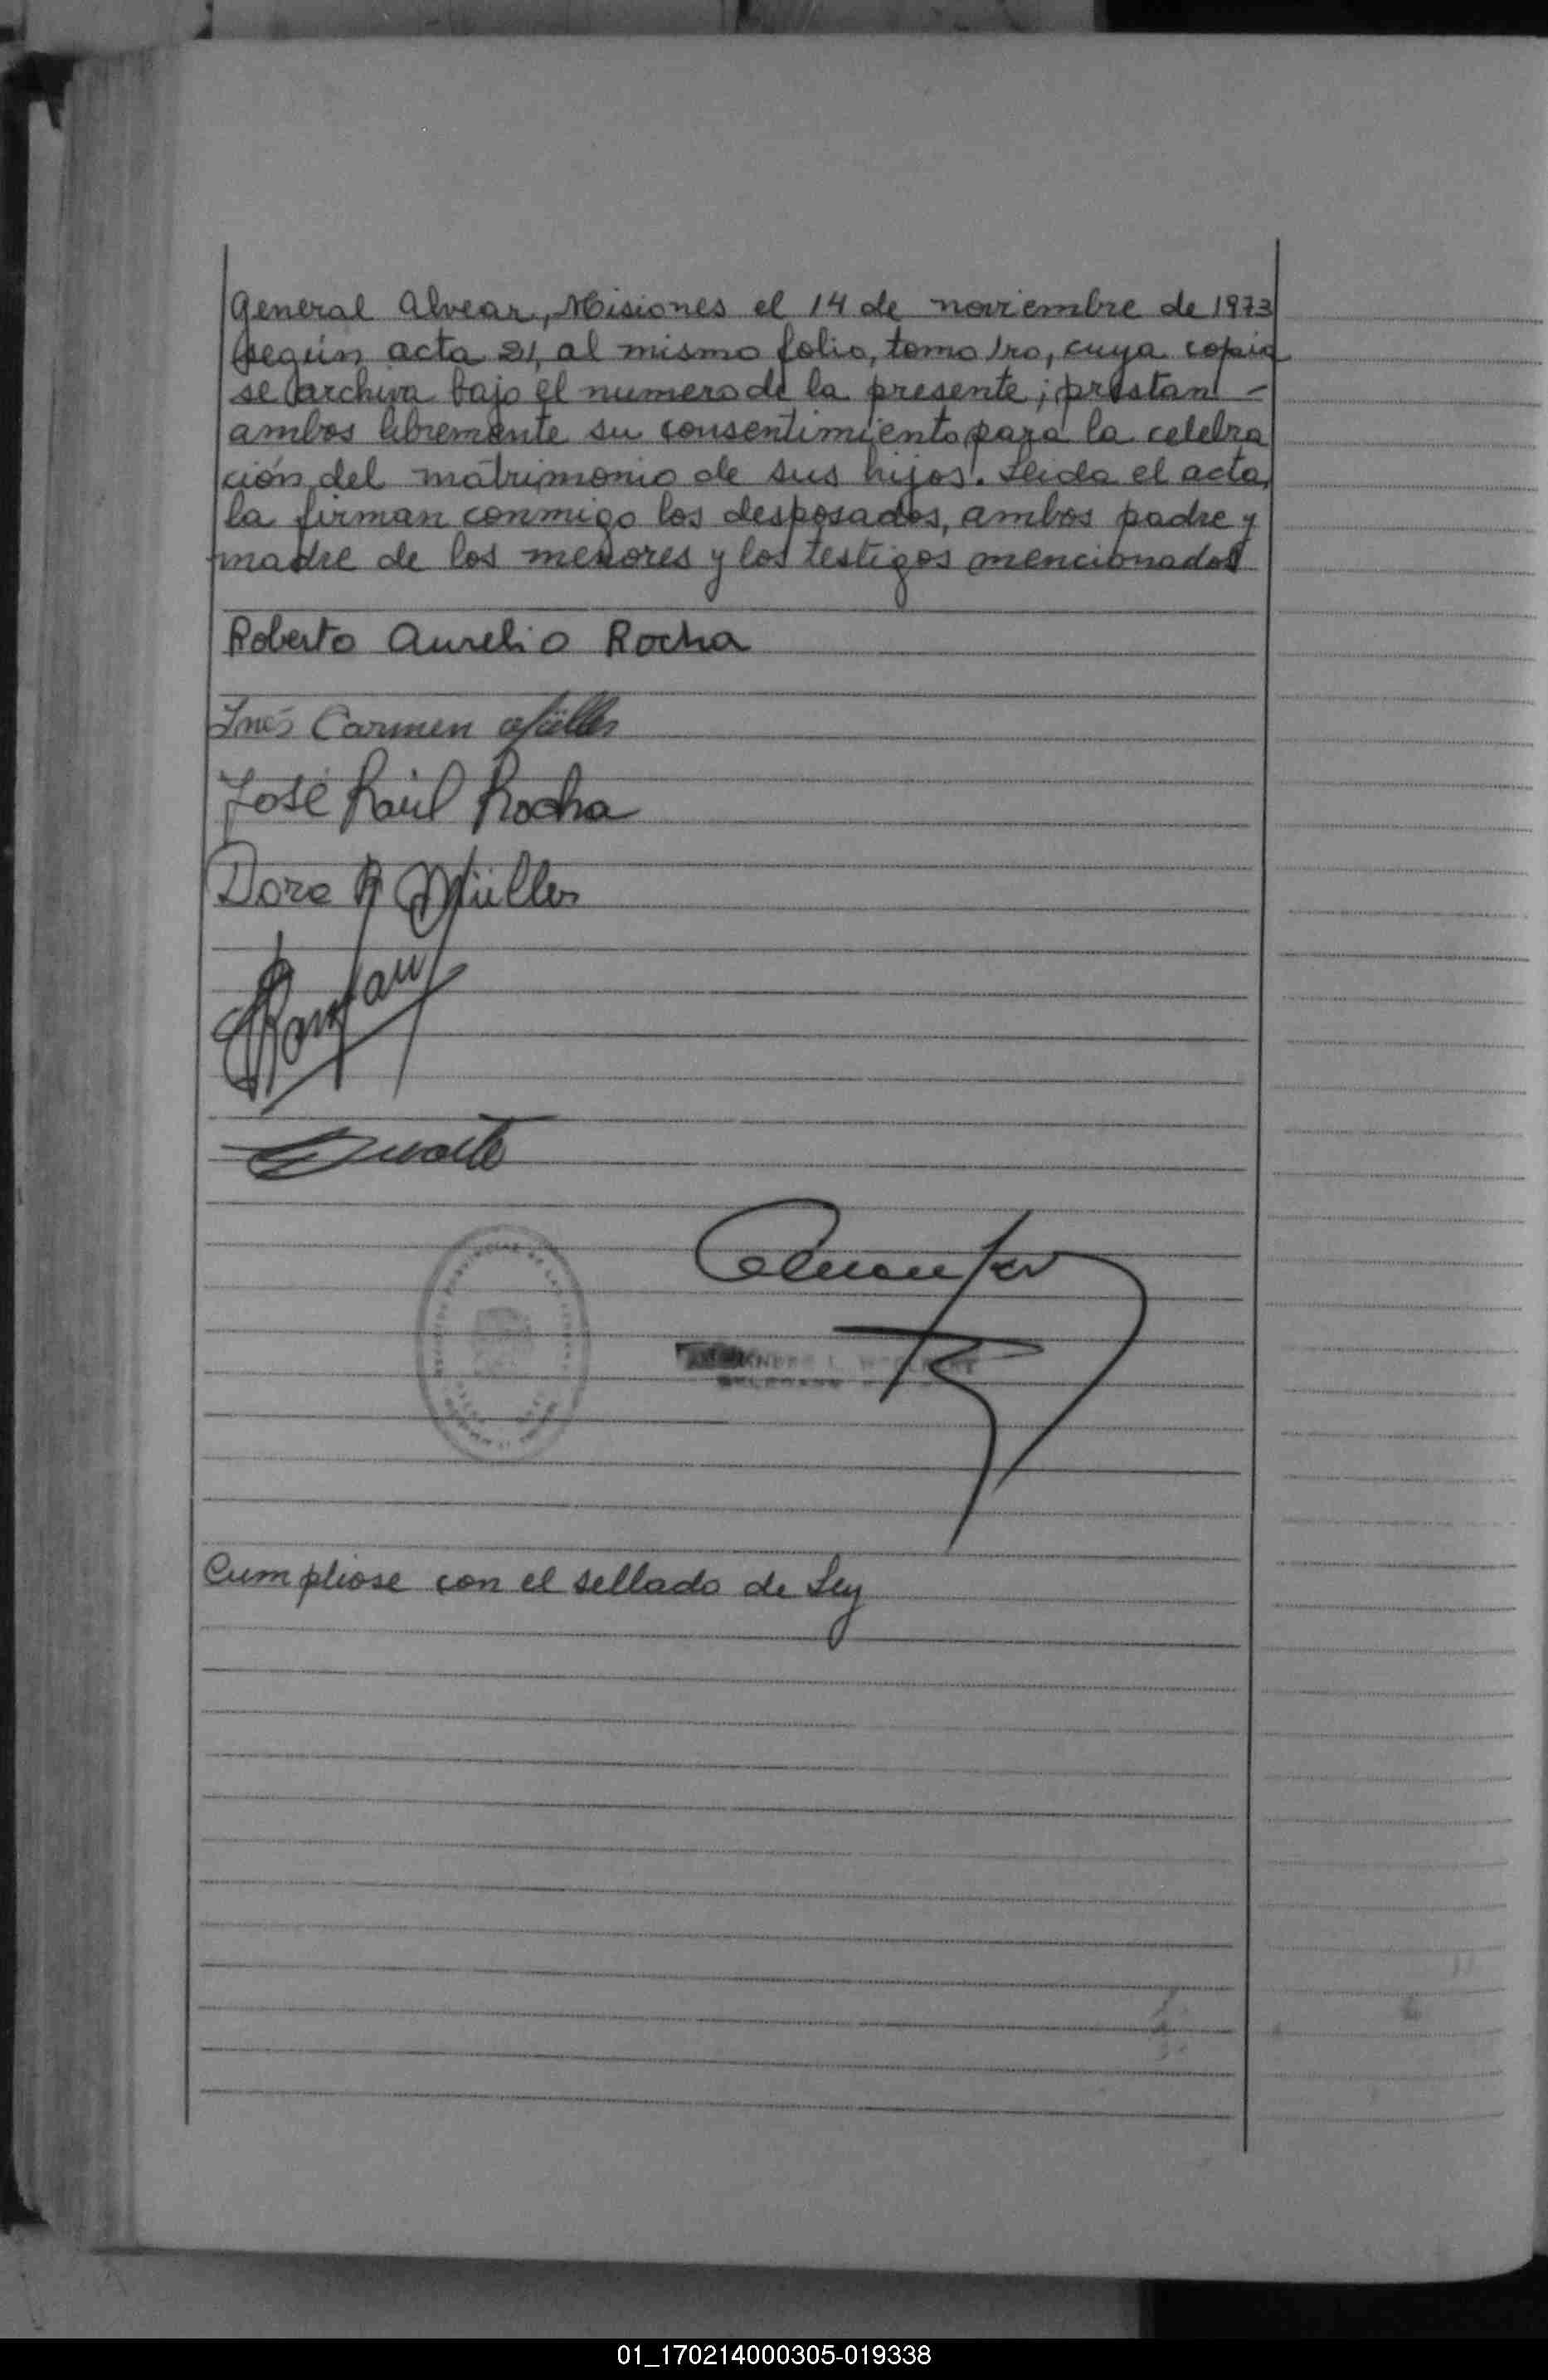 General Alvear, Misiones el 14 de noviembre de 1973
según acta 21, al mismo folio, tomo 1ro, cuya copia
se archiva bajo el numero de la presente; prestan -
ambos libremente su consentimiento para la celebra
ción del matrimonio de sus hijos. Leida el acta,
la firman conmigo los desposados, ambos padre y
madre de los menores y los testigos mencionados
Roberto Aurelio Rocha
Inés Carmen Müller
José Raúl Rocha
Dora R Müller
Duarte
Cumpliose con el sellado de Ley
01_170214000305-019338